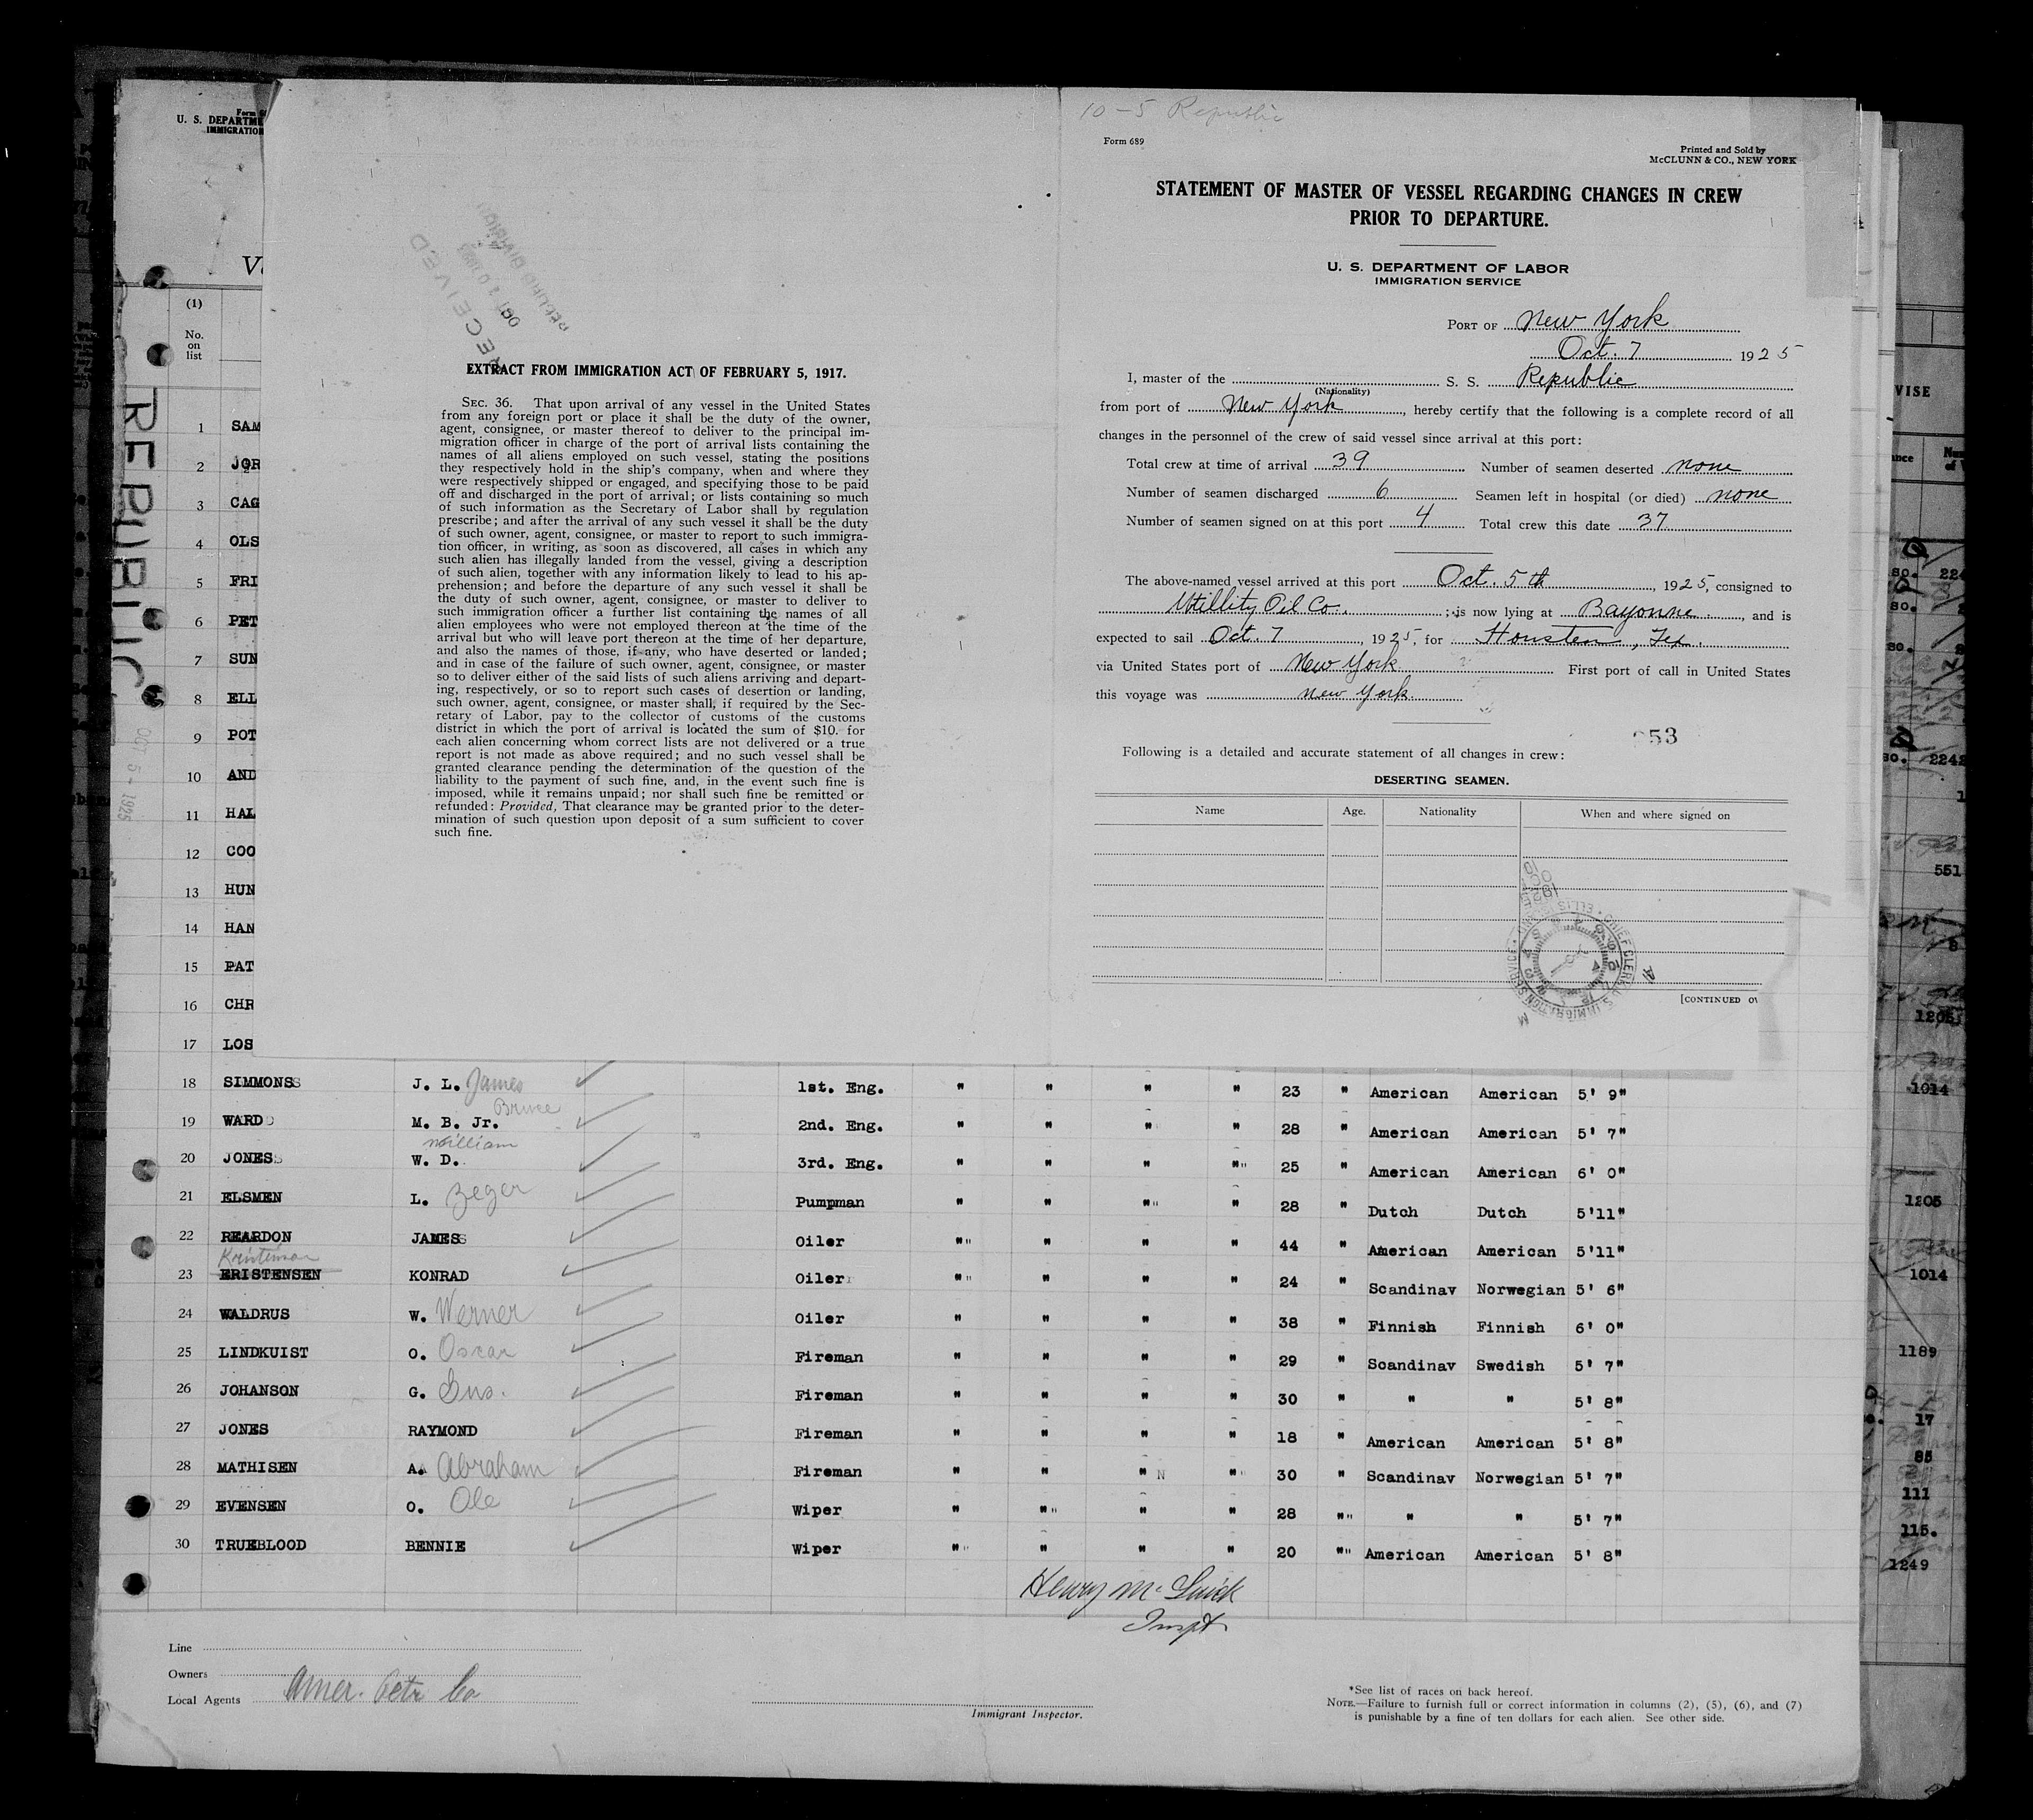 10-5 Republic
Form 689
Printed and Sold by
McCLUNN & CO., NEW YORK
STATEMENT OF MASTER OF VESSEL REGARDING CHANGES IN CREW
PRIOR TO DEPARTURE.
U. S. DEPARTMENT OF LABOR
IMMIGRATION SERVICE
PORT OF New York
Oct. 7 1925
I, master of the S. S. Republic
(Nationality)
from port of New York, hereby certify that the following is a complete record of all
changes in the personnel of the crew of said vessel since arrival at this port:
Total crew at time of arrival 39 Number of seamen deserted none
Number of seamen discharged 6 Seamen left in hospital (or died) none
Number of seamen signed on at this port 4 Total crew this date 37
The above-named vessel arrived at this port Oct. 5th, 1925, consigned to
Utillity Oil Co. ; is now lying at Bayonne, and is
expected to sail Oct. 7, 1925, for Houston, Tex.
via United States port of New York First port of call in United States
this voyage was New York.
53
Following is a detailed and accurate statement of all changes in crew:
DESERTING SEAMEN.
Name Age. Nationality When and where signed on
[CONTINUED OV
RECEIVED
OCT
EXTRACT FROM IMMIGRATION ACT OF FEBRUARY 5, 1917.
SEC. 36. That upon arrival of any vessel in the United States
from any foreign port or place it shall be the duty of the owner,
agent, consignee, or master thereof to deliver to the principal im-
migration officer in charge of the port of arrival lists containing the
names of all aliens employed on such vessel, stating the positions
they respectively hold in the ship's company, when and where they
were respectively shipped or engaged, and specifying those to be paid
off and discharged in the port of arrival; or lists containing so much
of such information as the Secretary of Labor shall by regulation
prescribe; and after the arrival of any such vessel it shall be the duty
of such owner, agent, consignee, or master to report to such immigra-
tion officer, in writing, as soon as discovered, all cases in which any
such alien has illegally landed from the vessel, giving a description
of such alien, together with any information likely to lead to his ap-
prehension; and before the departure of any such vessel it shall be
the duty of such owner, agent, consignee, or master to deliver to
such immigration officer a further list containing the names of all
alien employees who were not employed thereon at the time of the
arrival but who will leave port thereon at the time of her departure,
and also the names of those, if any, who have deserted or landed;
and in case of the failure of such owner, agent, consignee, or master
so to deliver either of the said lists of such aliens arriving and depart-
ing, respectively, or so to report such cases of desertion or landing,
such owner, agent, consignee, or master shall, if required by the Sec-
retary of Labor, pay to the collector of customs of the customs
district in which the port of arrival is located the sum of $10. for
each alien concerning whom correct lists are not delivered or a true
report is not made as above required; and no such vessel shall be
granted clearance pending the determination of the question of the
liability to the payment of such fine, and, in the event such fine is
imposed, while it remains unpaid; nor shall such fine be remitted or
refunded: Provided, That clearance may be granted prior to the deter-
mination of such question upon deposit of a sum sufficient to cover
such fine.
U. S. DEPARTME
IMMIGRATION
(1)
No.
on
list
REPUBLIC
OCT 5 - 1925
1 SAM
2 JOR
3 CAG
4 OLS
5 FRI
6 PET
7 SUN
8 ELL
9 POT
10 AND
11 HAL
12 COO
13 HUN
14 HAN
15 PAT
16 CHR
17 LOS
18 SIMMONS J. L. James 1st. Eng. " " " " 23 " American American 5' 9"
Bruce
19 WARD M. B. Jr. 2nd. Eng. " " " " 28 " American American 5' 7"
William
20 JONES W. D. 3rd. Eng. " " " " 25 " American American 6' 0"
21 ELSMEN L. Zeger Pumpman " " " " 28 " Dutch Dutch 5'11"
22 REARDON JAMES Oiler " " " " 44 " American American 5'11"
23 KRISTENSEN KONRAD Oiler " " " " 24 " Scandinav Norwegian 5' 6"
24 WALDRUS W. Werner Oiler " " " " 38 " Finnish Finnish 6' 0"
25 LINDKUIST O. Oscar Fireman " " " " 29 " Scandinav Swedish 5' 7"
26 JOHANSON G. Gus. Fireman " " " " 30 " " " 5' 8"
27 JONES RAYMOND Fireman " " " " 18 " American American 5' 8"
28 MATHISEN A. Abraham Fireman " " " " 30 " Scandinav Norwegian 5' 7"
29 EVENSEN O. Ole Wiper " " " " 28 " " " 5' 7"
30 TRUEBLOOD BENNIE Wiper " " " " 20 " American American 5' 8"
Henry Mc
Inspt.
Line
Owners
Local Agents Amer. Petr Co
Immigrant Inspector.
*See list of races on back hereof.
NOTE.—Failure to furnish full or correct information in columns (2), (5), (6), and (7)
is punishable by a fine of ten dollars for each alien. See other side.
VISE
551
1205
1014
1205
1014
1189
17
85
111
115.
1249